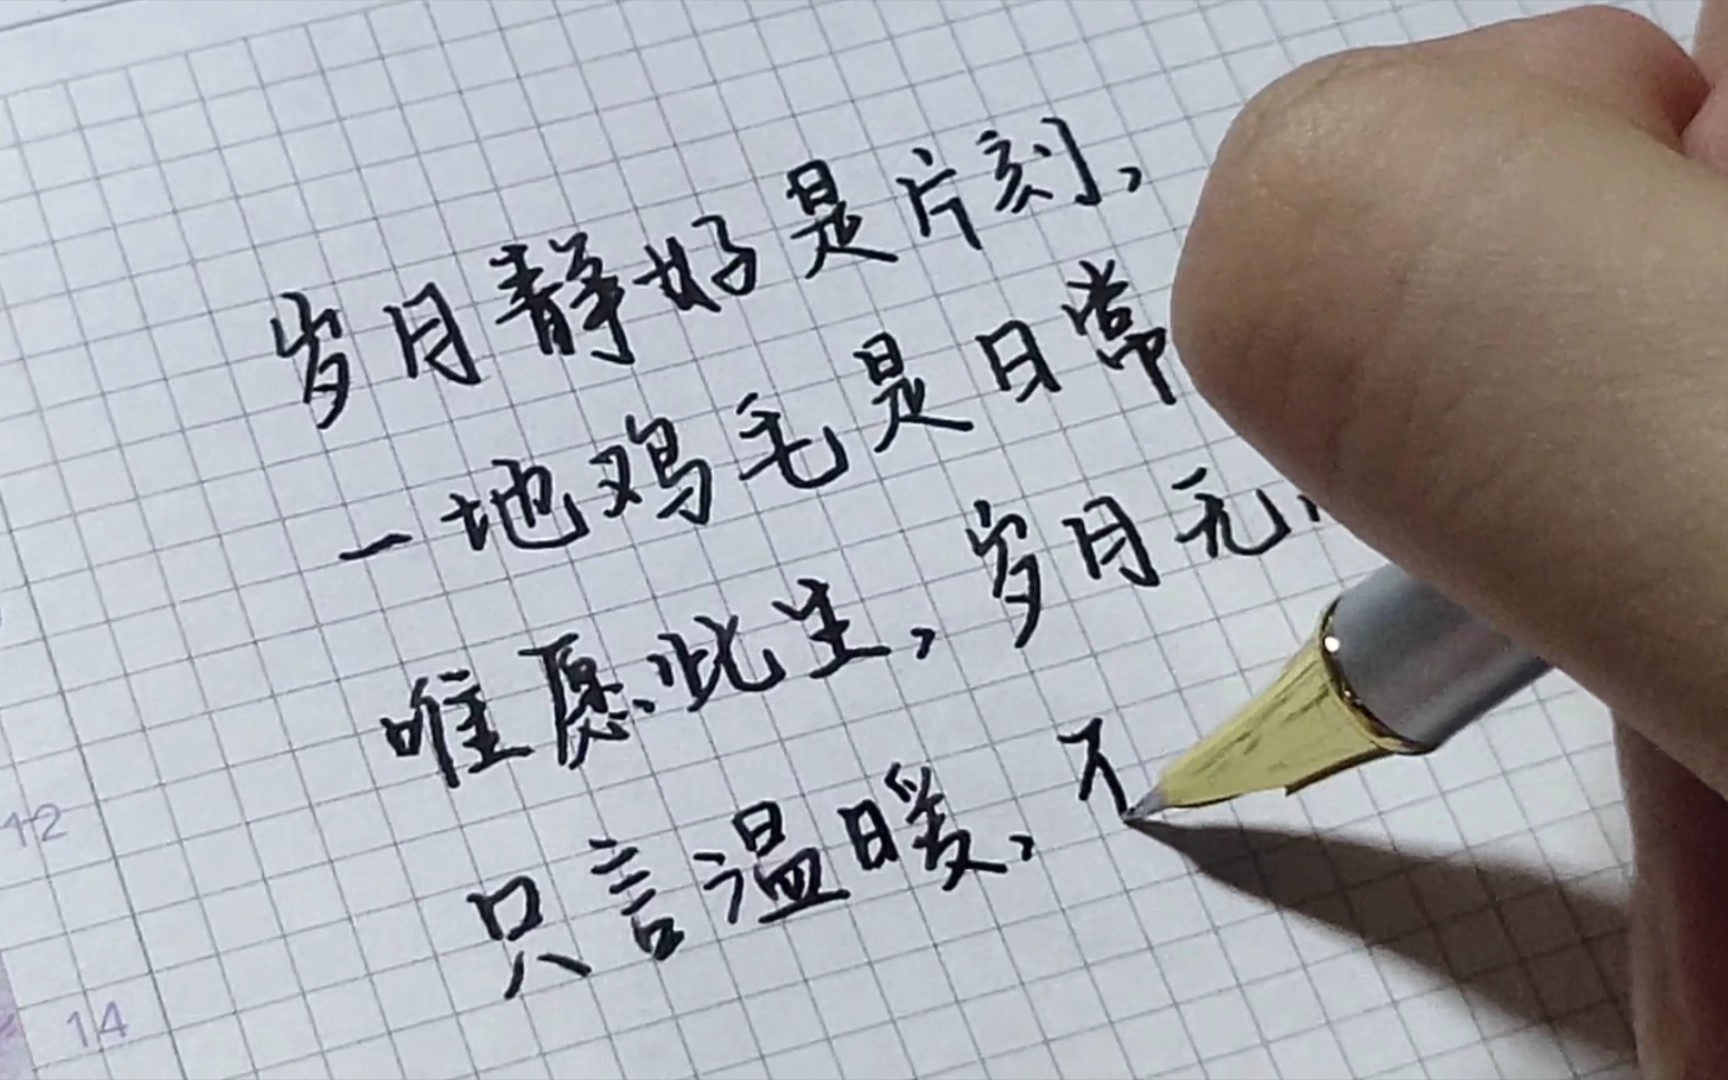 岁月静好是片刻,
一地鸡毛是日常
唯愿此生,岁月无
只言温暖,不
12
14